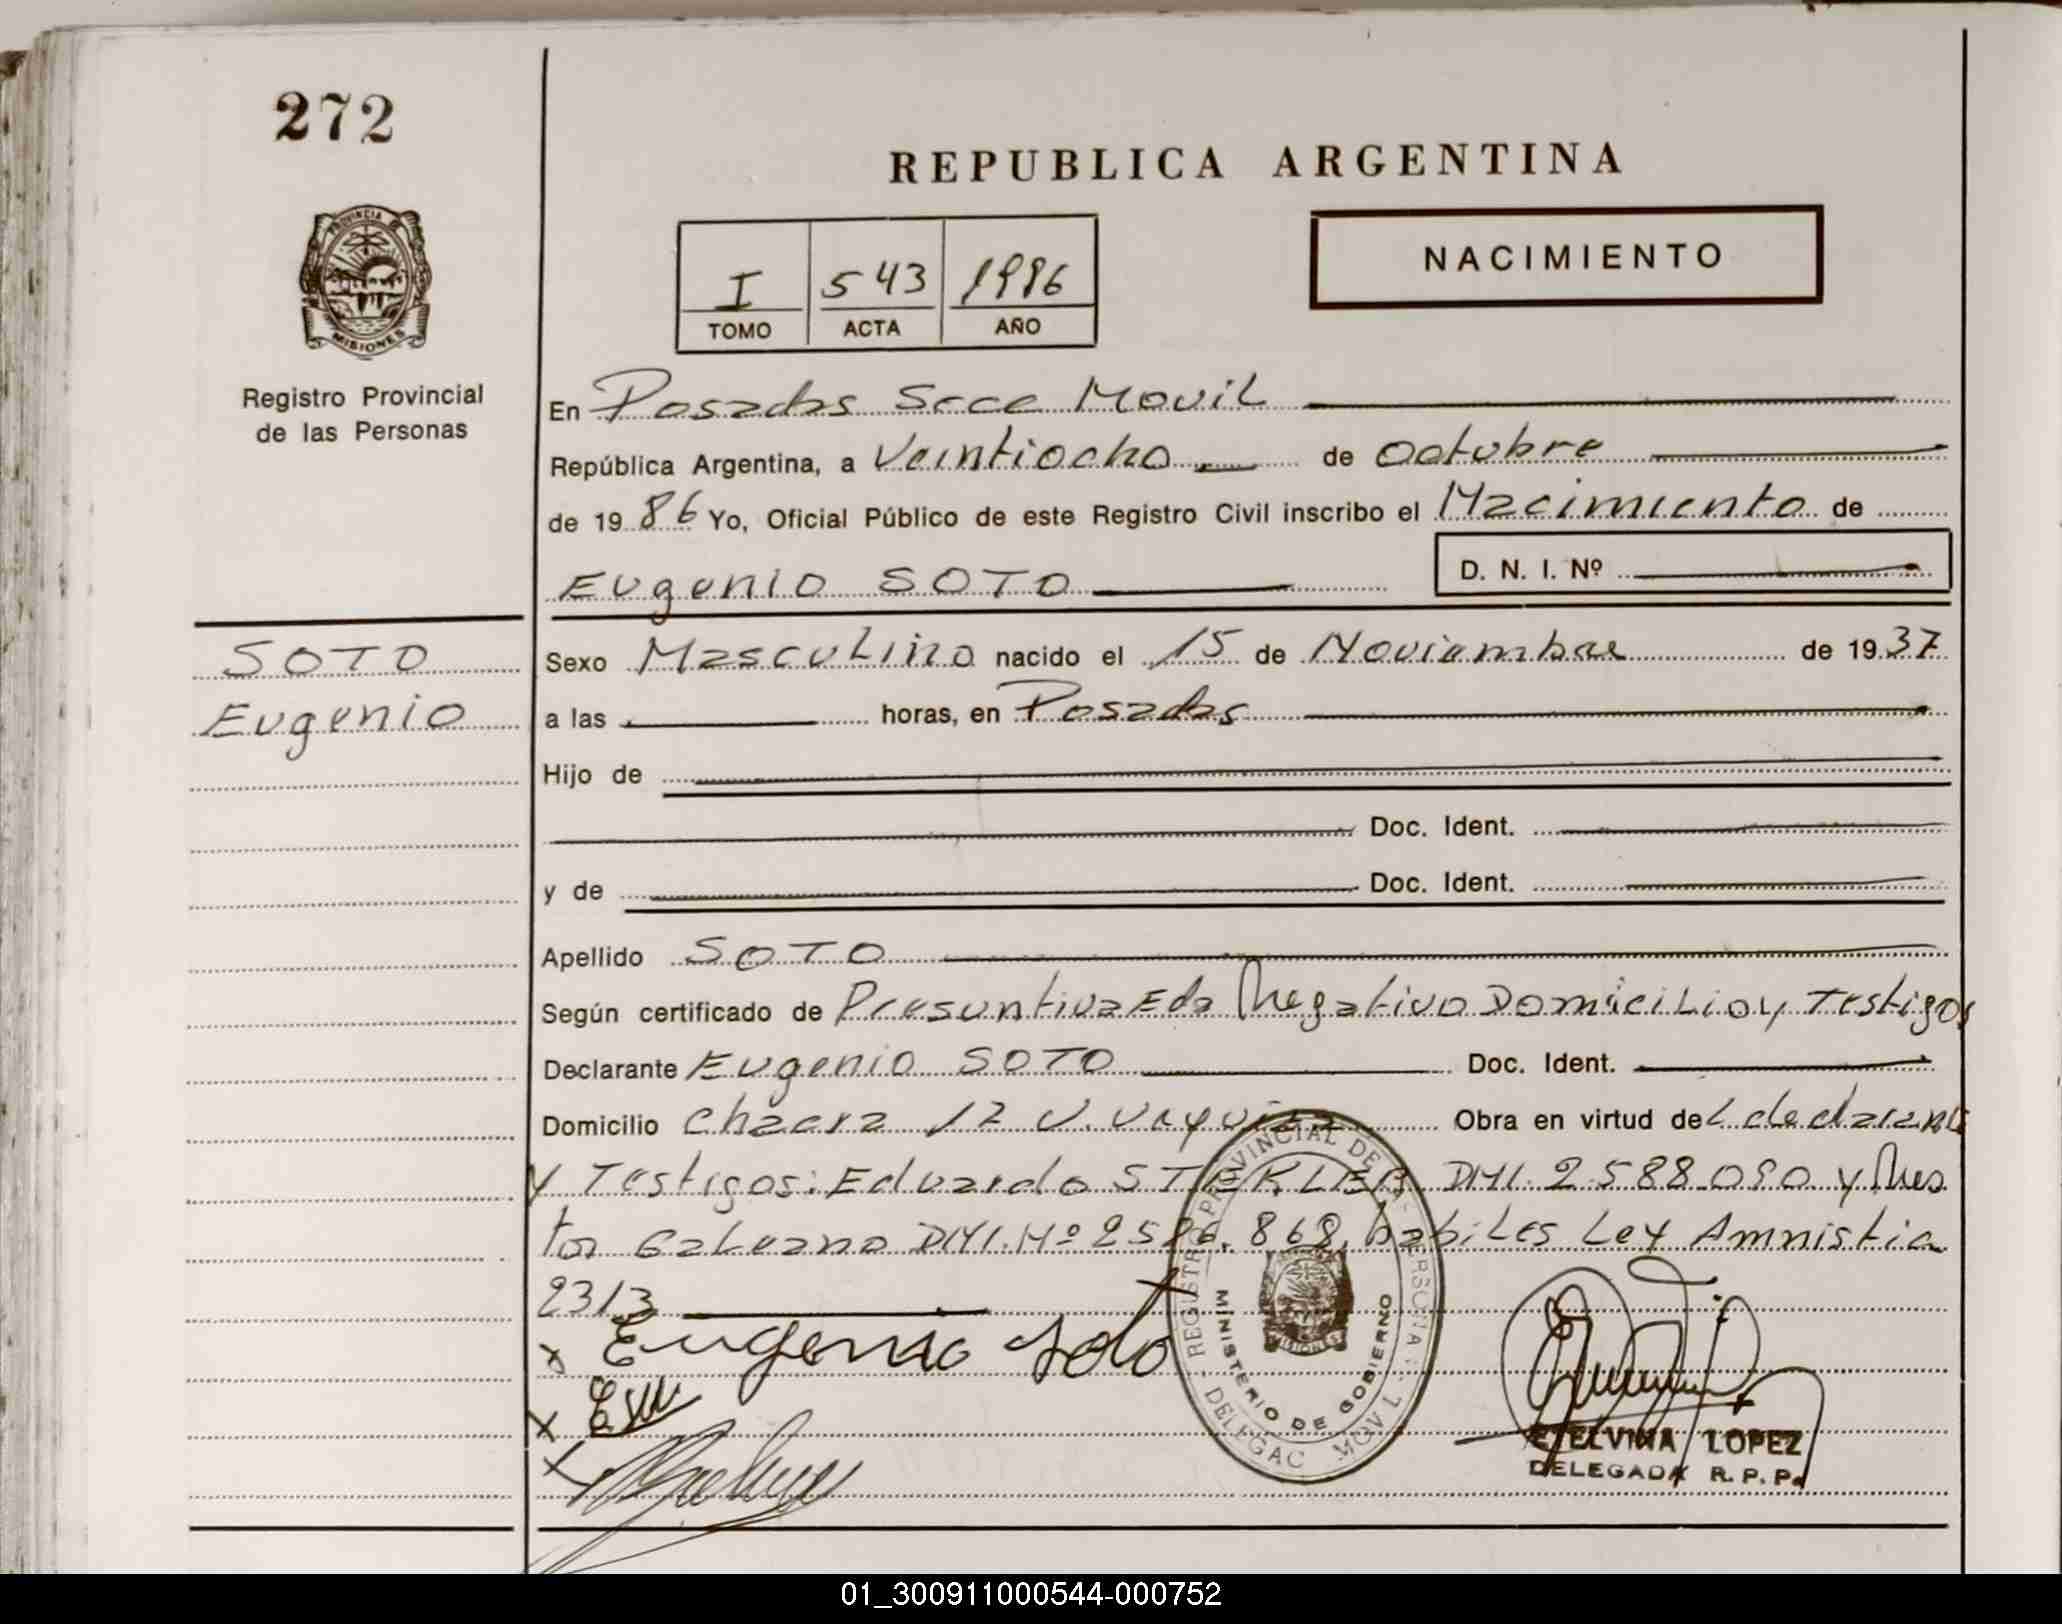 272
REPUBLICA ARGENTINA
PROVINCIA DE
MISIONES
I 543 1986
TOMO ACTA AÑO
NACIMIENTO
Registro Provincial
de las Personas
En Posadas Secc Movil
República Argentina, a Veintiocho de Octubre
de 1986 Yo, Oficial Público de este Registro Civil inscribo el Nacimiento de
Eugenio SOTO D. N. I. Nº
SOTO
Eugenio
Sexo Masculino nacido el 15 de Noviembre de 1937
a las horas, en Posadas
Hijo de
Doc. Ident.
y de Doc. Ident.
Apellido SOTO
Según certificado de Presuntiva Eda Negativo Domicilio y Testigos
Declarante Eugenio SOTO Doc. Ident.
Domicilio Chacra 12 V. Urquiza Obra en virtud del declarante
y Testigos: Eduardo STEKLER DNI. 2588090 y Nes
tor Galeano DNI. Nº 2586.868, habiles Ley Amnistia
2313
x Eugenio Soto
x
x
REGISTRO PROVINCIAL DE LAS PERSONAS
MINISTERIO DE GOBIERNO
MISIONES
DELEGAC MOVIL
ETELVINA LOPEZ
DELEGADA R. P. P.
01_300911000544-000752